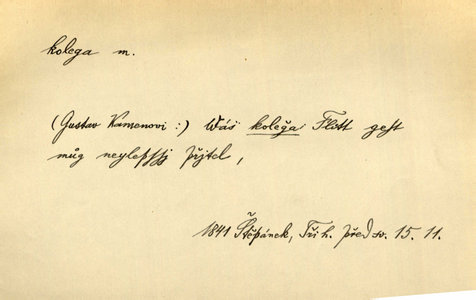 kolega m.
(Gustav Kamenovi:) Wáš kolega Flott gest
můg neylepssj přjtel,
1841 Štěpánek, Tři h. před sv. 15. 11.